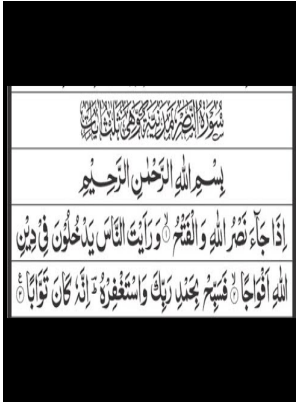 سُوْرَةُ النَّصْرِ مَدَنِيَّةٌ وَّهِيَ ثَلٰثُ اٰيَاتٍ
بِسْمِ اللهِ الرَّحْمٰنِ الرَّحِيْمِ
اِذَا جَآءَ نَصْرُ اللهِ وَ الْفَتْحُ ۙ۝۱ وَ رَاَيْتَ النَّاسَ يَدْخُلُوْنَ فِيْ دِيْنِ
اللهِ اَفْوَاجًا ۙ۝۲ فَسَبِّحْ بِحَمْدِ رَبِّكَ وَاسْتَغْفِرْهُ ؕ اِنَّهٗ كَانَ تَوَّابًا ۝۳